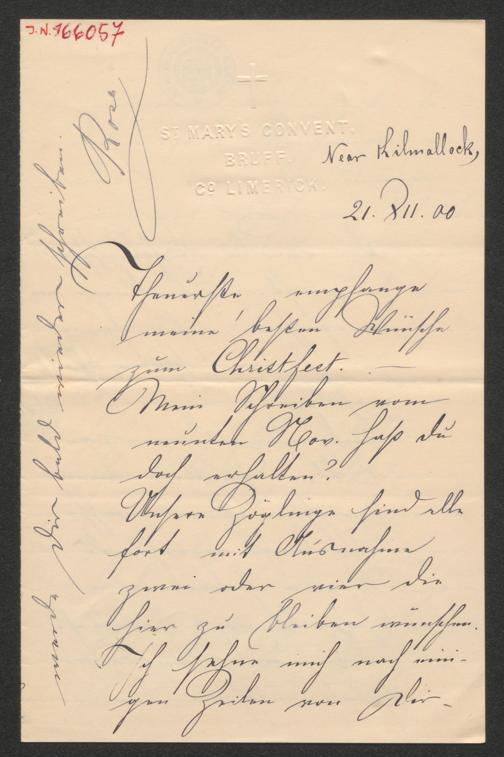 J.N. 166057
ST MARY'S CONVENT,
BRUFF,
CO LIMERICK.
Near Kilmallock,
21. XII. 00
Theuerste, empfange
meine besten Wünsche
zum Christfest. —
Mein Schreiben vom
neunten Nov. hast du
doch erhalten?
Unsere Zöglinge sind alle
fort mit Ausnahme
zwei oder vier die
hier zu bleiben wünschen.
Ich sehne mich nach eini-
gen Zeilen von Dir –
werde Dir bald wieder schreiben.
Rosa